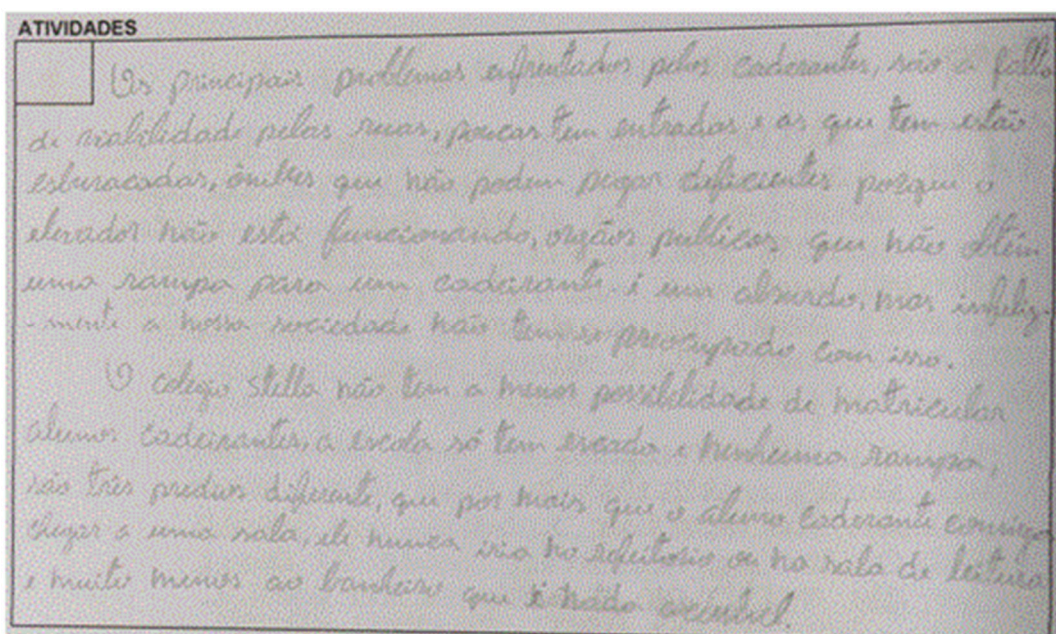 ATIVIDADES
Os principais problemas enfrentados pelos caderantes, são a falta
de reabilidade pelas ruas, poucas tem entradas e as que tem estão
esburacadas, ônibus que não podem pegar deficientes porque o
elevador não está funcionando, orgãos publicos que não obtém
uma rampa para um caderante é um absurdo, mas infeliz-
-mente a nossa sociedade não tem se preocupado com isso.
O colegio stella não tem a menor possibilidade de matricular
alunos cadeirantes, a escola só tem escada e nenhuma rampa,
são três predios diferente, que por mais que o aluno caderante consiga
chegar a uma sala, ele nunca iria no refeitorio ou na sala de leitura
e muito menos ao banheiro que é nada